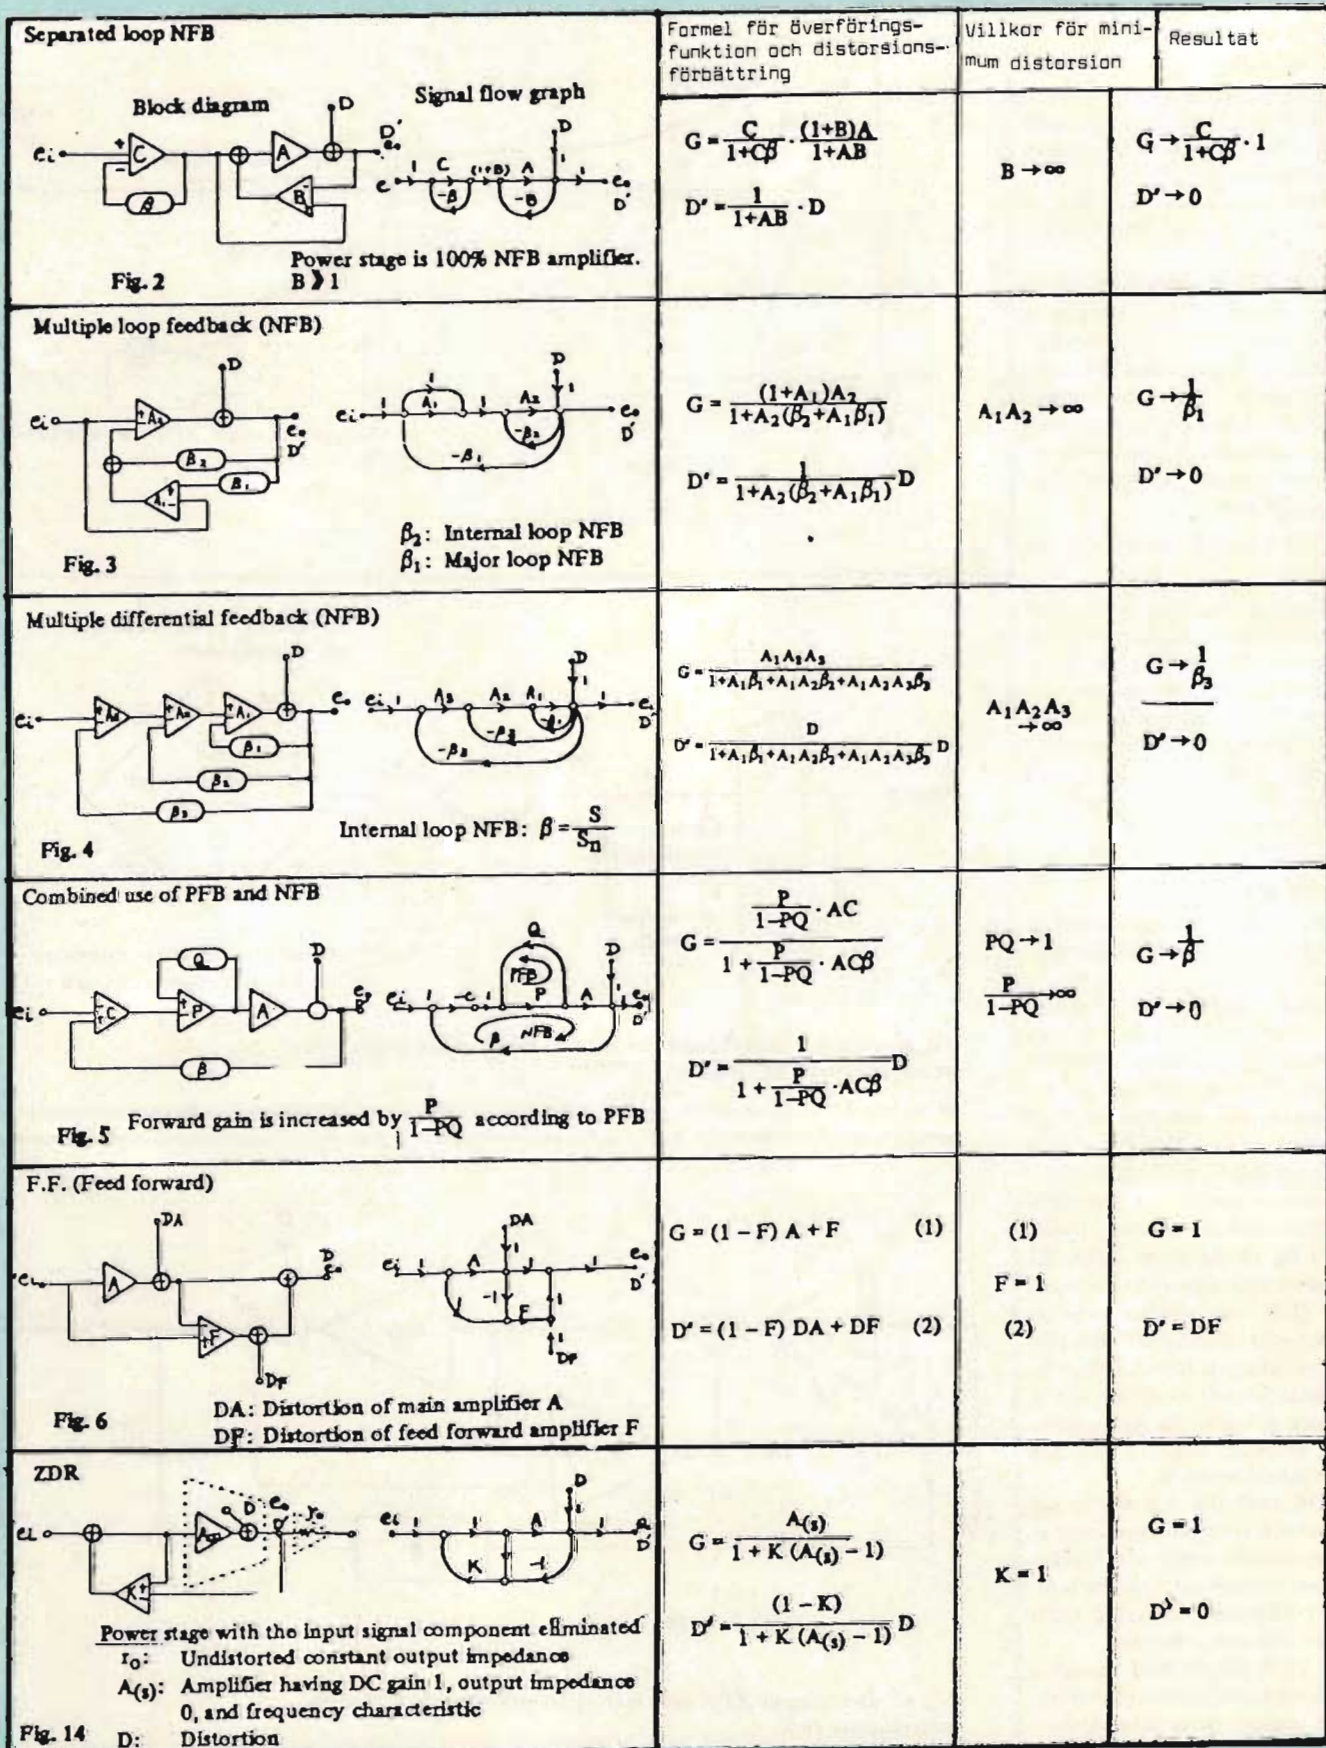 Separated loop NFB
Formel för överförings-
funktion och distorsions-
förbättring
Villkor för mini-
mum distorsion
Resultat
Block diagram
Signal flow graph
ei + C - β D D' e. A B
e 1 C (1+B) A D 1 1 e. D' -β -B
Power stage is 100% NFB amplifier.
B ⟫ 1
Fig. 2
G = C/(1+Cβ) · (1+B)A/(1+AB)
D' = 1/(1+AB) · D
B → ∞
G → C/(1+Cβ) · 1
D' → 0
Multiple loop feedback (NFB)
ei D e. D' β2 β1
ei 1 1 A1 1 A2 D 1 e. D' -β2 -β1
β2: Internal loop NFB
β1: Major loop NFB
Fig. 3
G = (1+A1)A2/(1+A2(β2+A1β1))
D' = 1/(1+A2(β2+A1β1)) D
A1A2 → ∞
G → 1/β1
D' → 0
Multiple differential feedback (NFB)
ei A2 A1 D e. β1 β2 β3
ei 1 A3 A2 A1 D 1 1 D'
Internal loop NFB: β = S/Sn
Fig. 4
G = A1A2A3/(1+A1β1+A1A2β2+A1A2A3β3)
D' = D/(1+A1β1+A1A2β2+A1A2A3β3) D
A1A2A3
→ ∞
G → 1/β3
D' → 0
Combined use of PFB and NFB
ei C P Q A D β
ei 1 -C 1 Q PFB P A D 1 1 e. D' β NFB
Fig. 5 Forward gain is increased by P/(1-PQ) according to PFB
G = (P/(1-PQ) · AC)/(1 + P/(1-PQ) · ACβ)
D' = 1/(1 + P/(1-PQ) · ACβ) D
PQ → 1
P/(1-PQ) → ∞
G → 1/β
D' → 0
F.F. (Feed forward)
ei A DA F DF
ei 1 A DA 1 1 1 e. D' -1 F 1 1 DF
DA: Distortion of main amplifier A
DF: Distortion of feed forward amplifier F
Fig. 6
G = (1 − F) A + F (1)
D' = (1 − F) DA + DF (2)
(1)
F = 1
(2)
G = 1
D' = DF
ZDR
ei D e. D' ro K
ei 1 1 A D 1 1 D' K -1
Power stage with the input signal component eliminated
ro: Undistorted constant output impedance
A(s): Amplifier having DC gain 1, output impedance
0, and frequency characteristic
Fig. 14 D: Distortion
G = A(s)/(1 + K (A(s) − 1))
D' = (1 − K)/(1 + K (A(s) − 1)) D
K = 1
G = 1
D' = 0